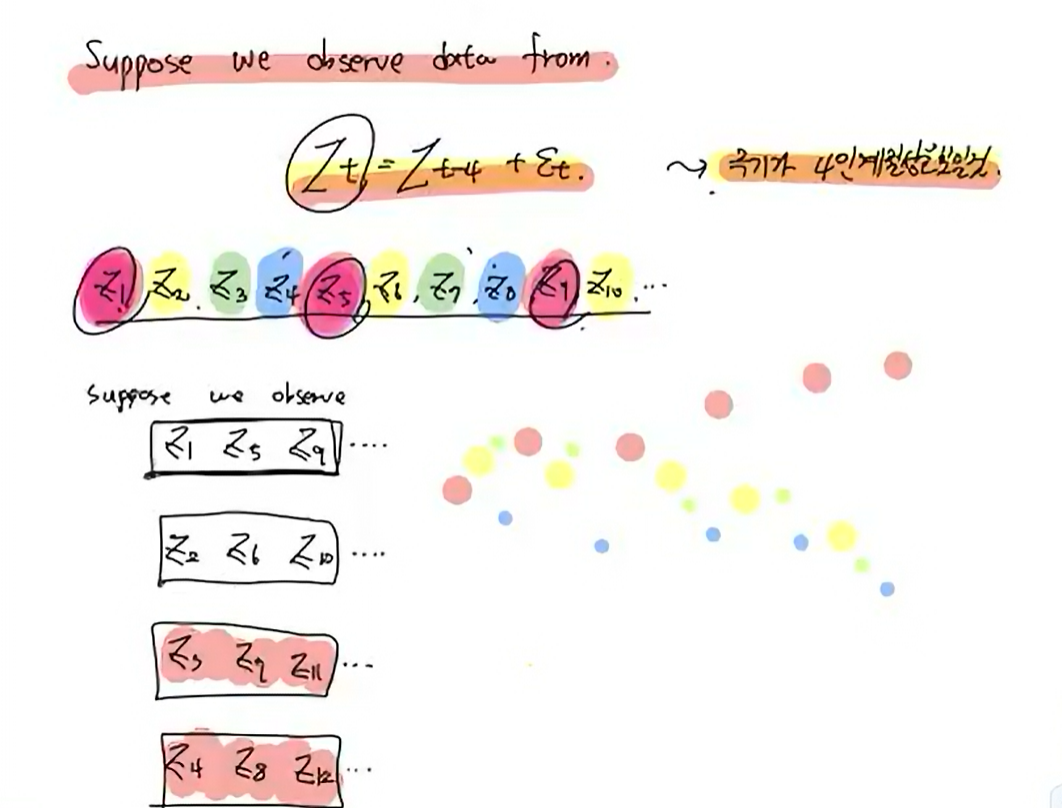 Suppose we observe data from.
Zt = Zt-4 + εt. ⤳ 주기가 4인 계절성을 보일것.
Z1, Z2, Z3 Z4 Z5, Z6, Z7, Z8 Z9 Z10, ...
Suppose we observe
Z1 Z5 Z9 ....
Z2 Z6 Z10 ....
Z3 Z7 Z11 ...
Z4 Z8 Z12 ...